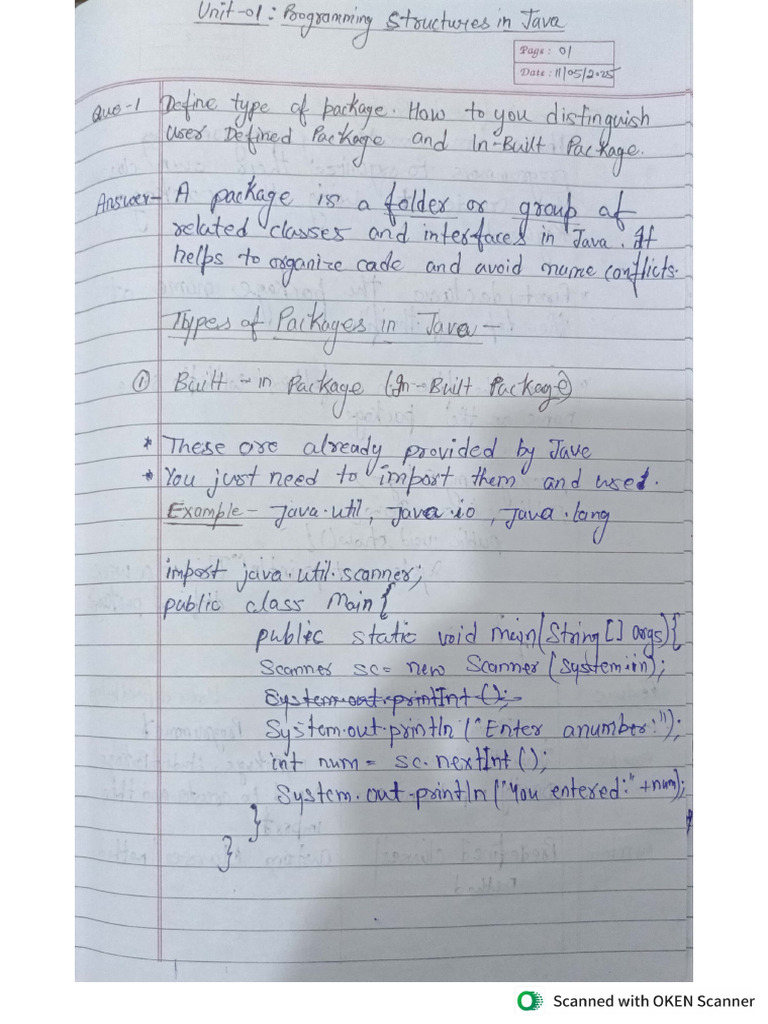 Unit-01: Programming Structures in Java
Page: 01
Date: 11/05/2025
Que-1 Define type of package. How to you distinguish
User Defined Package and In-Built Package.
Answer- A package is a folder or group of
related classes and interfaces in Java. It
helps to organize code and avoid name conflicts.
Types of Packages in Java -
① Built-in Package (In-Built Package)
* These are already provided by Java
* You just need to import them and use.
Example - Java.util, Java.io, Java.lang
import java.util.scanner;
public class Main{
public static void main(String[] args){
Scanner sc= new Scanner (System.in);
System.out.printInt();
System.out.println ("Enter anumber:");
int num = sc.nextInt();
System.out.println ("You entered:" +num);
}
}
Scanned with OKEN Scanner